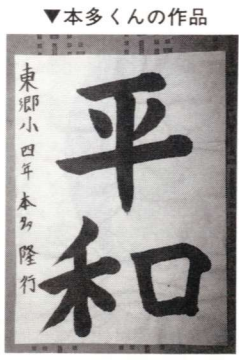 ▼本多くんの作品
平和
東郷小四年 本多隆行